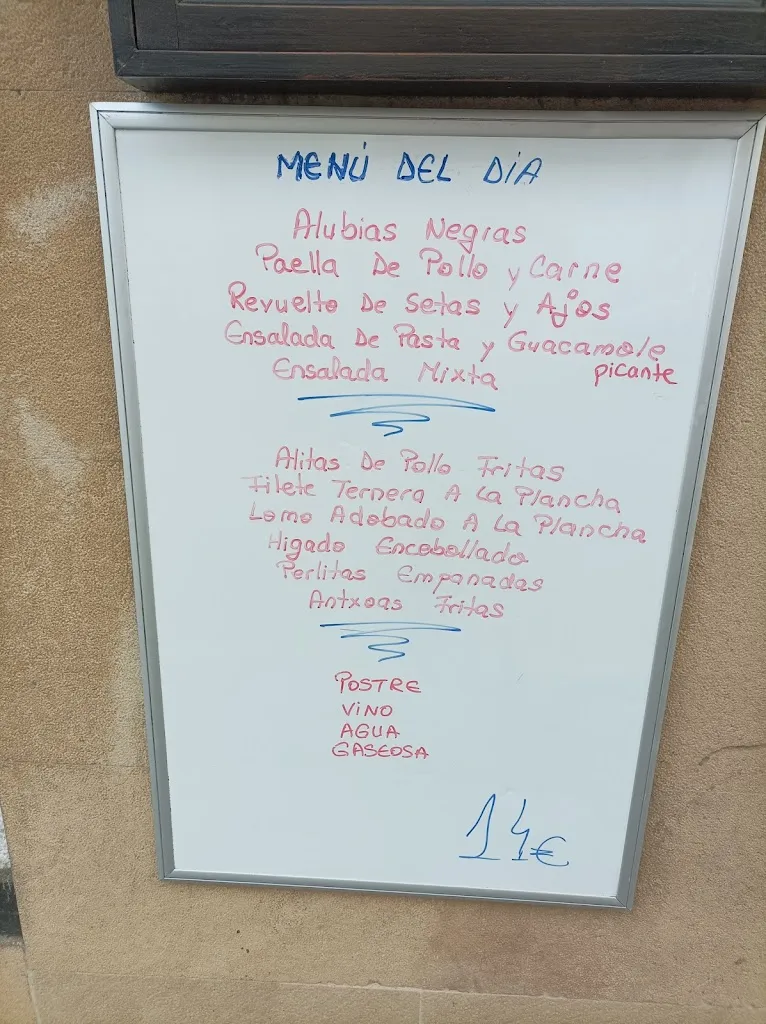 MENÚ DEL DÍA
Alubias Negras
Paella De Pollo y Carne
Revuelto De Setas y Ajos
Ensalada De Pasta y Guacamole
picante
Ensalada Mixta
Alitas De Pollo Fritas
Filete Ternera A La Plancha
Lomo Adobado A La Plancha
Higado Encebollado
Perlitas Empanadas
Antxoas Fritas
POSTRE
VINO
AGUA
GASEOSA
14€